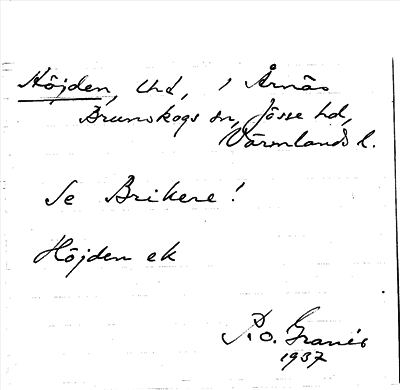 Höjden, Lhd, i Årnäs
Brunskogs sn, Jösse hd,
Värmlands l.
Se Brikere!
Höjden ek
R.O. Granér
1937